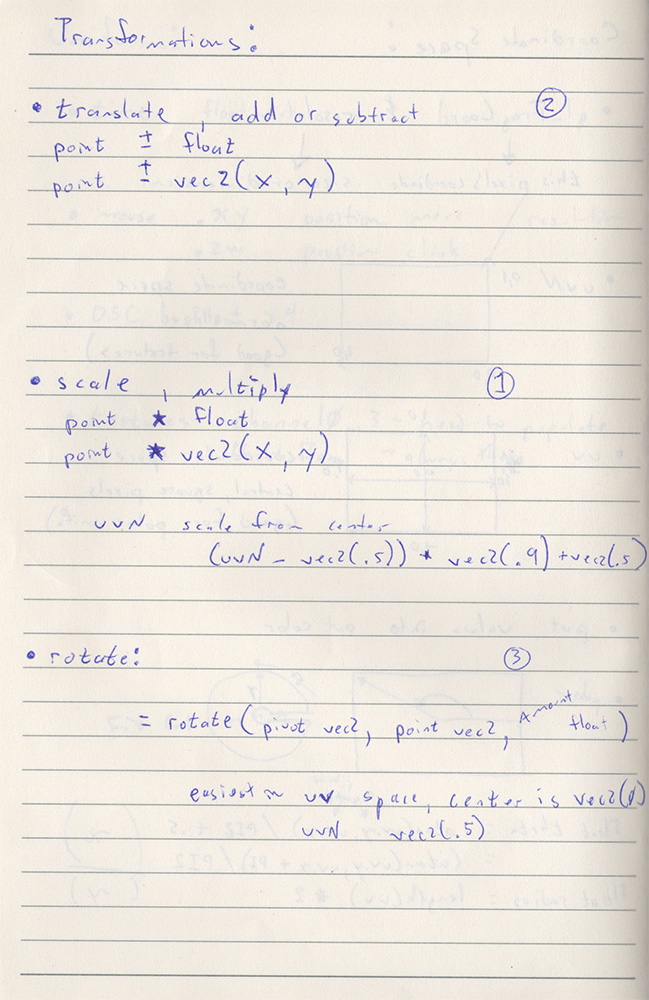 Transformations:
• translate, add or subtract ②
point ± float
point ± vec2(x, y)
• scale, multiply ①
point * float
point * vec2(x, y)
uvN scale from center
(uvN - vec2(.5)) * vec2(.9) + vec2(.5)
• rotate: ③
= rotate(pivot vec2, point vec2, Amount float)
easiest in uv space, center is vec2(0)
uvN vec2(.5)